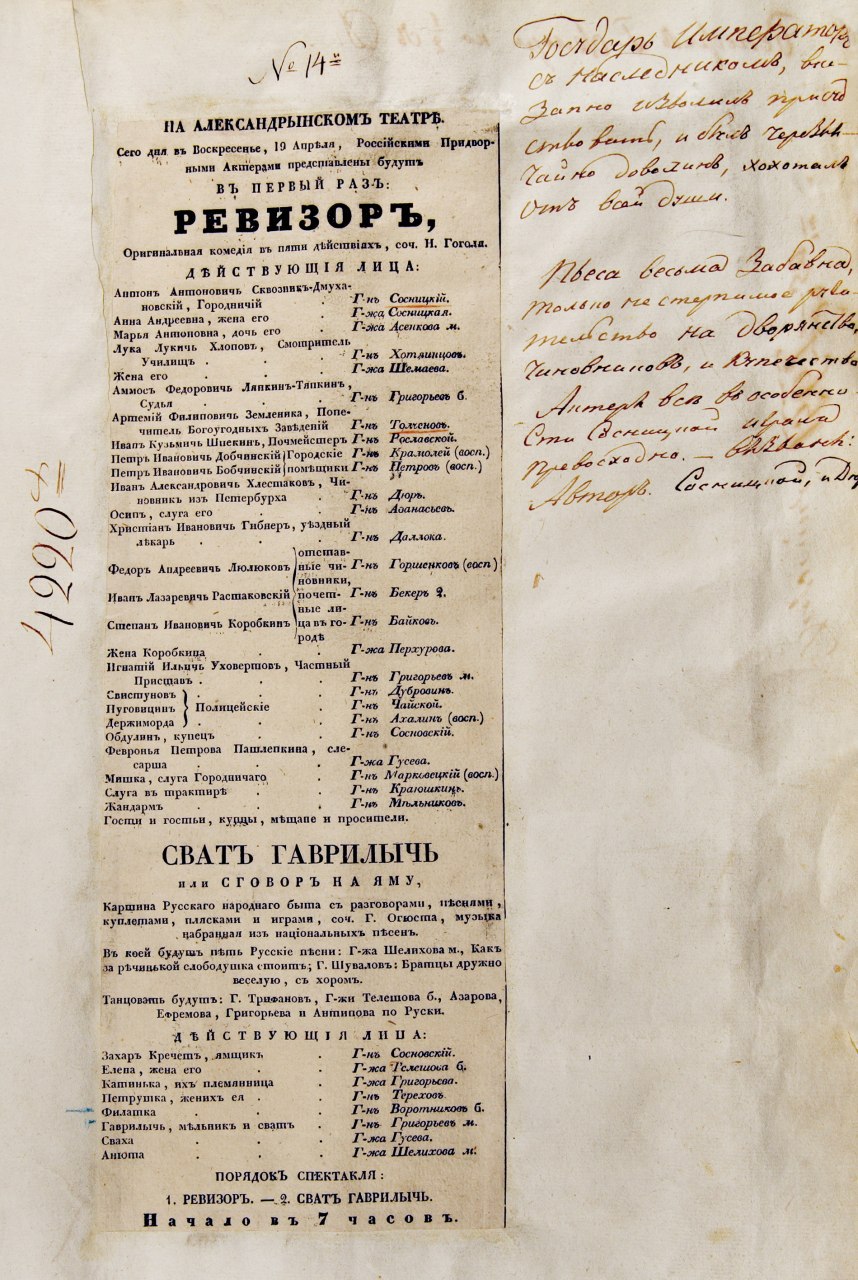 № 14й
НА АЛЕКСАНДРЫНСКОМЪ ТЕАТРѢ.
Сего дня въ Воскресенье, 19 Апрѣля, Россійскими Придвор-
ными Актерами представлены будутъ
ВЪ ПЕРВЫЙ РАЗЪ:
РЕВИЗОРЪ,
Оригинальная комедія въ пяти дѣйствіяхъ, соч. Н. Гоголя.
ДѢЙСТВУЮЩІЯ ЛИЦА:
Антонъ Антоновичь Сквозникъ-Дмуха-
новскій, Городничій . Г-нъ Сосницкій.
Анна Андреевна, жена его . Г-жа Сосницкая.
Марья Антоновна, дочь его . Г-жа Асенкова м.
Лука Лукичь Хлоповъ, Смотритель
Училищъ . . . Г-нъ Хотяинцовъ.
Жена его . . . Г-жа Шемаева.
Аммосъ Федоровичь Ляпкинъ-Тяпкинъ,
Судья . . . Г-нъ Григорьевъ б.
Артемій Филиповичь Земленика, Попе-
чишель Богоугодныхъ Заведеній Г-нъ Толченовъ.
Иванъ Кузьмичь Шпекинъ, Почмейстеръ Г-нъ Рославской.
Петръ Ивановичь Добчинскій Городскіе Г-нъ Крамолей (восп.)
Петръ Ивановичь Бобчинскій помѣщики Г-нъ Петровъ (восп.)
Иванъ Александровичь Хлестаковъ, Чи-
новникъ изъ Петербурха . Г-нъ Дюръ.
Осипъ, слуга его . . Г-нъ Аѳанасьевъ.
Христіанъ Ивановичь Гибнеръ, уѣздный
лѣкарь . . . Г-нъ Даллока.
отстав-
Федоръ Андреевичь Люлюковъ ные чи- Г-нъ Горшенковъ (восп)
новники,
Иванъ Лазаревичь Растаковскій почет- Г-нъ Бекеръ 2.
ные ли-
Степанъ Ивановичь Коробкинъ ца въ го- Г-нъ Байковъ.
родѣ
Жена Коробкина . . Г-жа Перхурова.
Игнатій Ильичь Уховертовъ, Частный
Приставъ . . . Г-нъ Григорьевъ м.
Свистуновъ . . Г-нъ Дубровинъ.
Пуговицинъ Полицейскіе . Г-нъ Чайской.
Держиморда . . Г-нъ Ахалинъ (восп.)
Обдулинъ, купецъ . . Г-нъ Сосновскій.
Февронья Петрова Пашлепкина, сле-
сарша . . . Г-жа Гусева.
Мишка, слуга Городничаго . Г-нъ Марковецкій (восп.)
Слуга въ трактирѣ . . Г-нъ Краюшкинъ.
Жандармъ . . . Г-нъ Мѣльниковъ.
Гости и гостьи, купцы, мѣщане и просители.
СВАТЪ ГАВРИЛЫЧЬ
или СГОВОРЪ НА ЯМУ,
Картина Русскаго народнаго быта съ разговорами, пѣснями,
куплетами, плясками и играми, соч. Г. Огюста, музыка
набранная изъ національныхъ пѣсенъ.
Въ коей будутъ пѣть Русскіе пѣсни: Г-жа Шелихова м., Какъ
за рѣчинькой слободушка стоитъ; Г. Шуваловъ: Братцы дружно
веселую, съ хоромъ.
Танцовать будутъ: Г. Трифановъ, Г-жи Телешова б., Азарова,
Ефремова, Григорьева и Антипова по Руски.
ДѢЙСТВУЮЩІЯ ЛИЦА:
Захаръ Кречетъ, ямщикъ . Г-нъ Сосновскій.
Елена, жена его . . Г-жа Телешова б.
Катинька, ихъ племянница . Г-жа Григорьева.
Петрушка, женихъ ея . . Г-нъ Тереховъ.
Филатка . . . Г-нъ Воротниковъ б.
Гаврилычь, мѣльникъ и сватъ . Г-нъ Григорьевъ м.
Сваха . . . Г-жа Гусева.
Анюта . . . Г-жа Шелихова м.
ПОРЯДОКЪ СПЕКТАКЛЯ:
1. РЕВИЗОРЪ. — 2. СВАТЪ ГАВРИЛЫЧЬ.
Начало въ 7 часовъ.
4220
Государь Императоръ
съ Наследникомъ, вне-
запно изволилъ присуд
ствовать, и былъ черезвы-
чайно доволинъ, хохоталъ
отъ всей души.
Пьеса весьма забавна,
только нестерпимое руга-
тельство на дворянство,
чиновниковъ, и купечество
Актеры все въ особенно-
сти Сосницкой играли
превосходно. — Вызваны:
Авторъ. Сосницкой, и Дюр